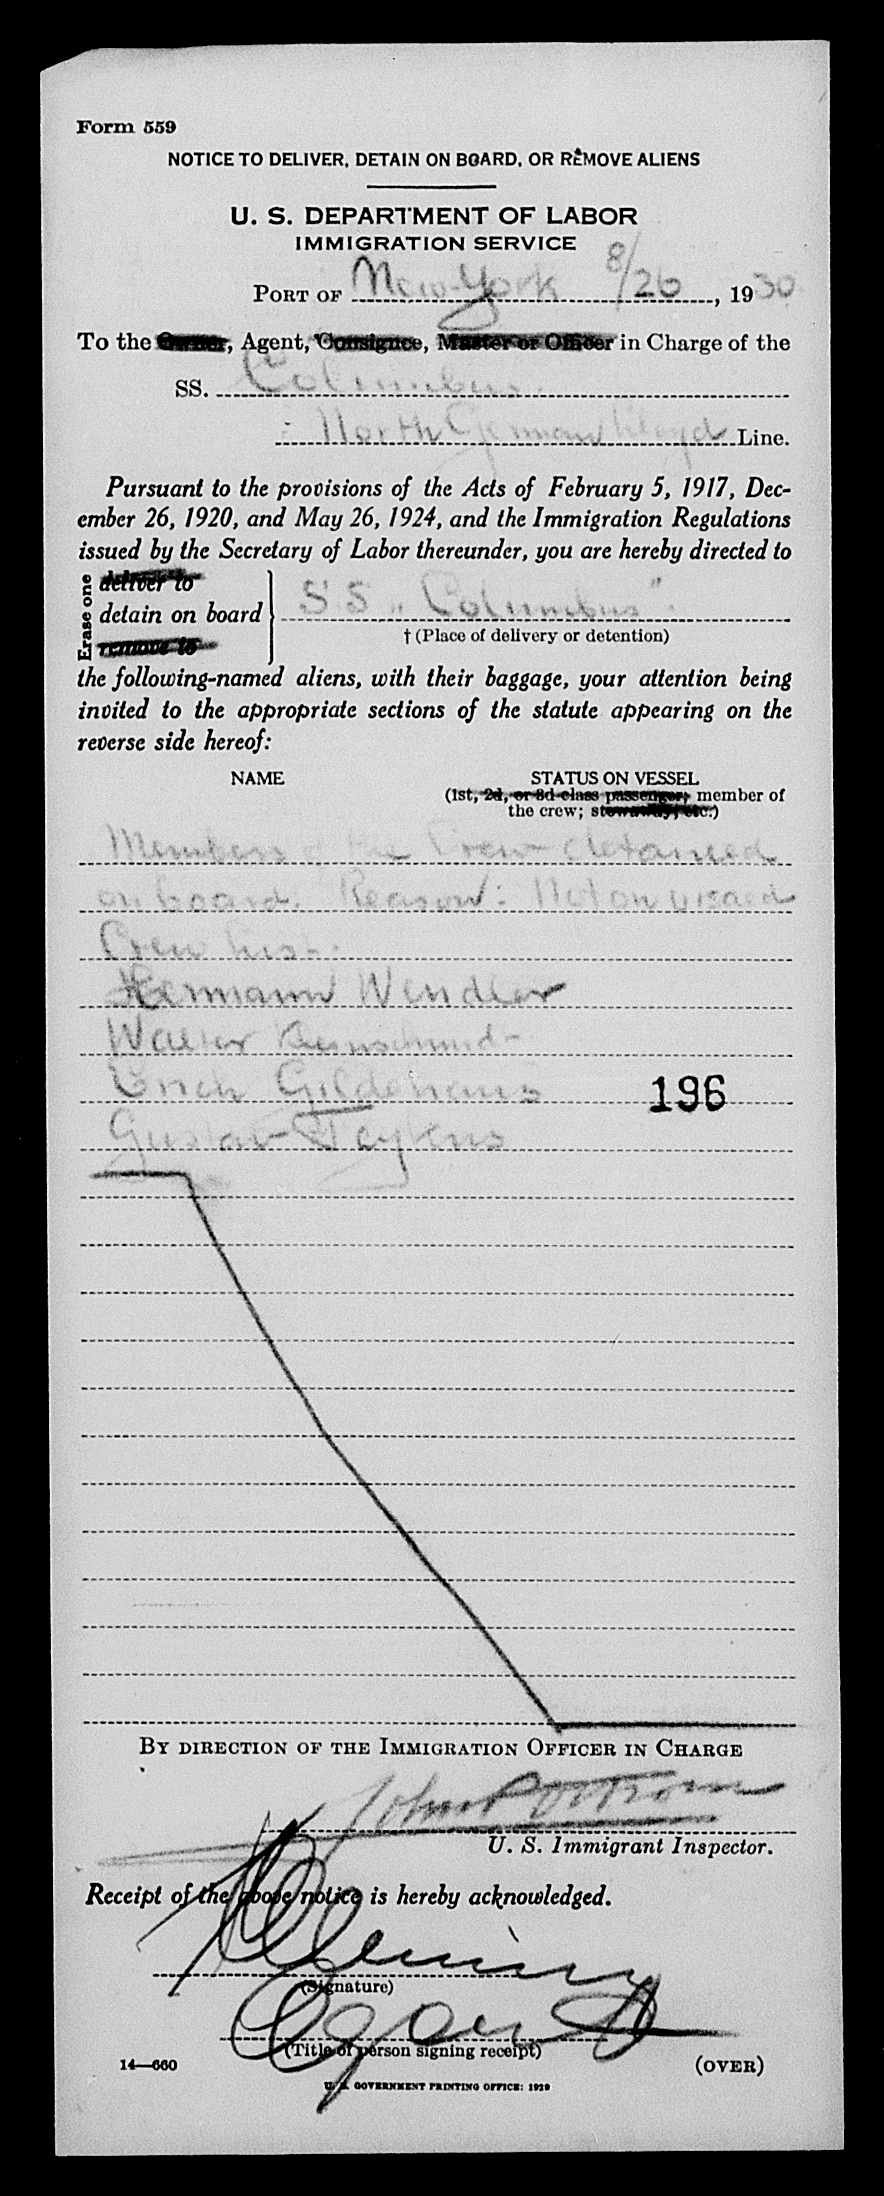 Form 559
NOTICE TO DELIVER, DETAIN ON BOARD, OR REMOVE ALIENS
U. S. DEPARTMENT OF LABOR
IMMIGRATION SERVICE
PORT OF New York 8/26, 1930
To the Owner, Agent, Consignee, Master or Officer in Charge of the
SS. Columbus.
North German Lloyd Line.
Pursuant to the provisions of the Acts of February 5, 1917, Dec-
ember 26, 1920, and May 26, 1924, and the Immigration Regulations
issued by the Secretary of Labor thereunder, you are hereby directed to
Erase one
deliver to
detain on board
remove to
SS "Columbus".
† (Place of delivery or detention)
the following-named aliens, with their baggage, your attention being
invited to the appropriate sections of the statute appearing on the
reverse side hereof:
NAME
STATUS ON VESSEL
(1st, 2d, or 3d class passenger, member of
the crew; stowaway, etc.)
Members of the Crew detained
on board. Reason: Not on visaed
Crew list.
Hermann Wendler
Walter
Erich Gildehaus
196
Gustav Feykens
BY DIRECTION OF THE IMMIGRATION OFFICER IN CHARGE
John
U. S. Immigrant Inspector.
Receipt of the above notice is hereby acknowledged.
(Signature)
Agent
(Title of person signing receipt)
14—660
(OVER)
U. S. GOVERNMENT PRINTING OFFICE: 1929